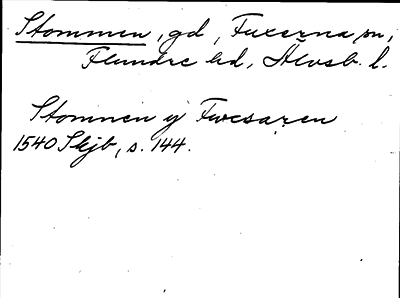 Stommen, gd, Fuxerna sn,
Flundre hd, Älvsb. l.
Stomnen ij Fwcsaren
1540 Skjb, s. 144.